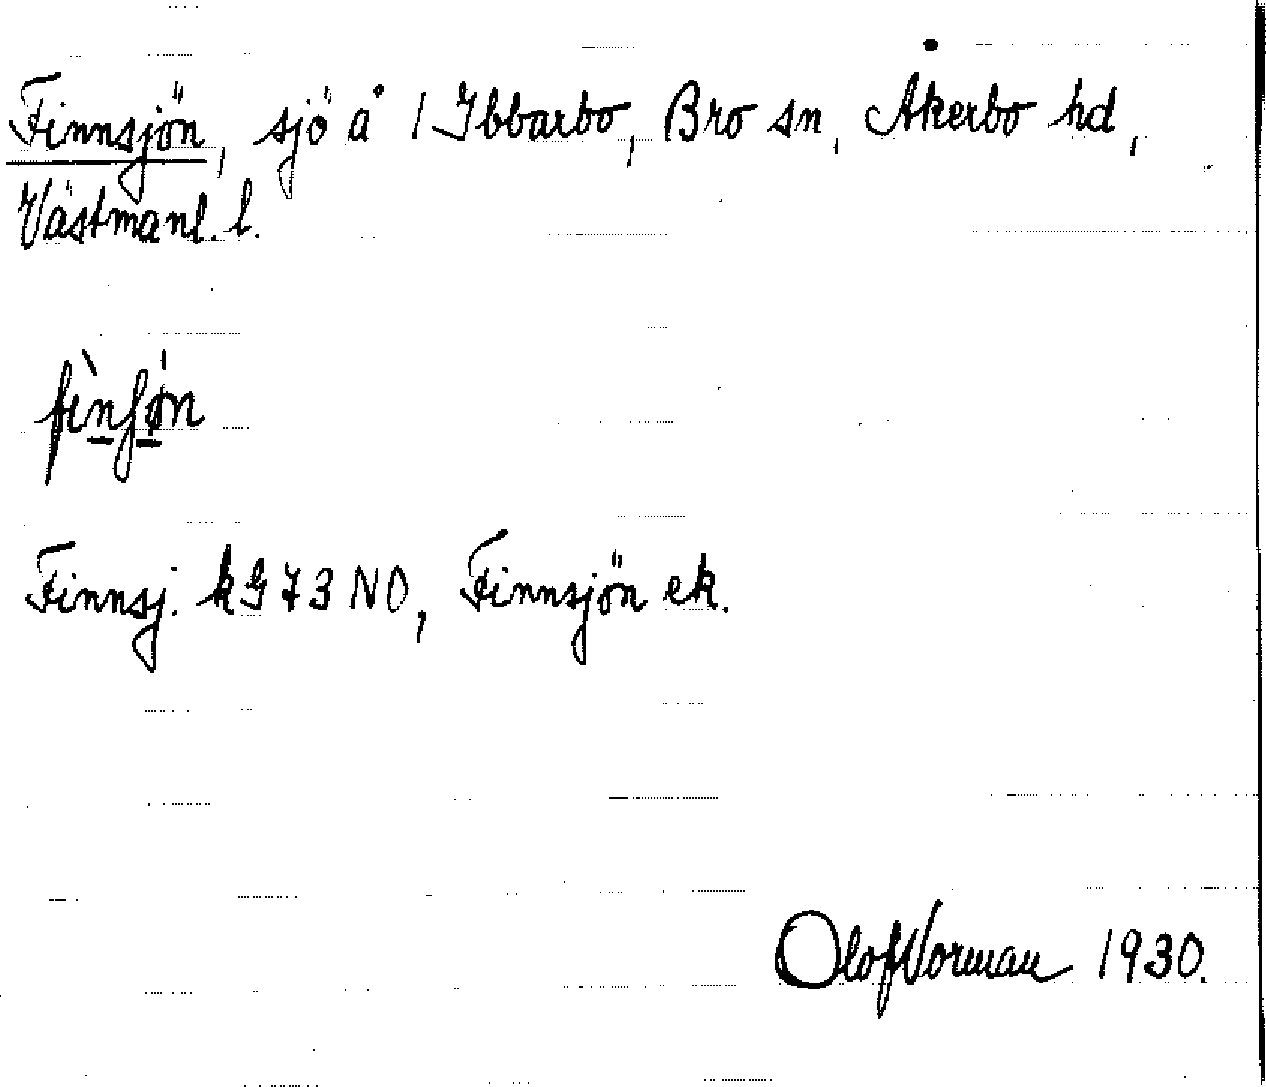 Finnsjön, sjö å 1 Ibbarbo, Bro sn, Åkerbo hd,
Västmanl. l.
fìnʃøn
Finnsj. kG 73 NO, Finnsjön ek.
Olof Norman 1930.